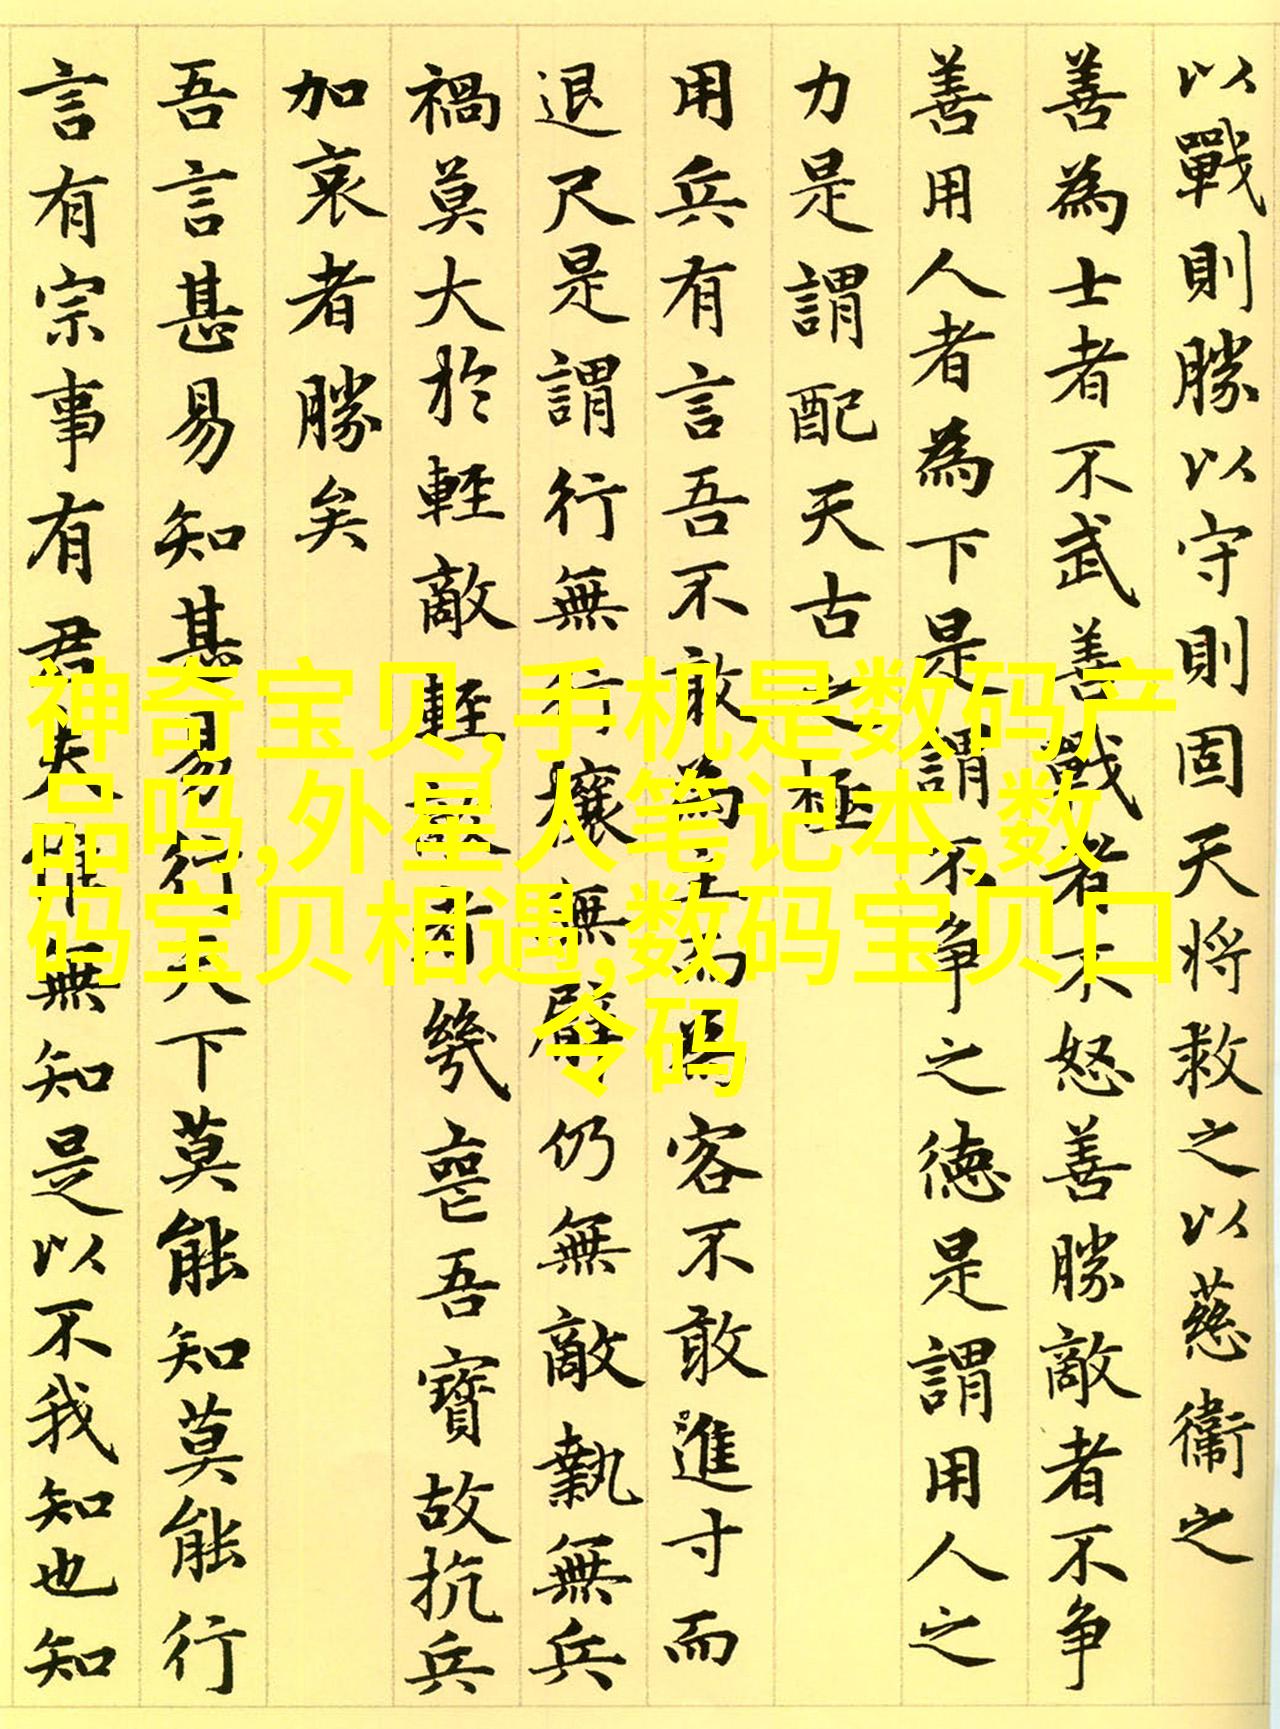 以戰則勝以守則固天将救之以慈衛之
善為士者不武善戰者不怒善勝敵者不争
善用人者為下是謂不争之德是謂用人之
力是謂配天古之極
用兵有言吾不敢為主而為客不敢進寸而
退尺是謂行無行攘無臂仍無敵執無兵
禍莫大於輕敵輕敵者幾喪吾寶故抗兵
加哀者勝矣
吾言甚易知甚易行天下莫能知莫能行
言有宗事有君夫唯無知是以不我知也知
神奇宝贝,手机是数码产
品吗,外星人笔记本,数
码宝贝相遇,数码宝贝口
令码